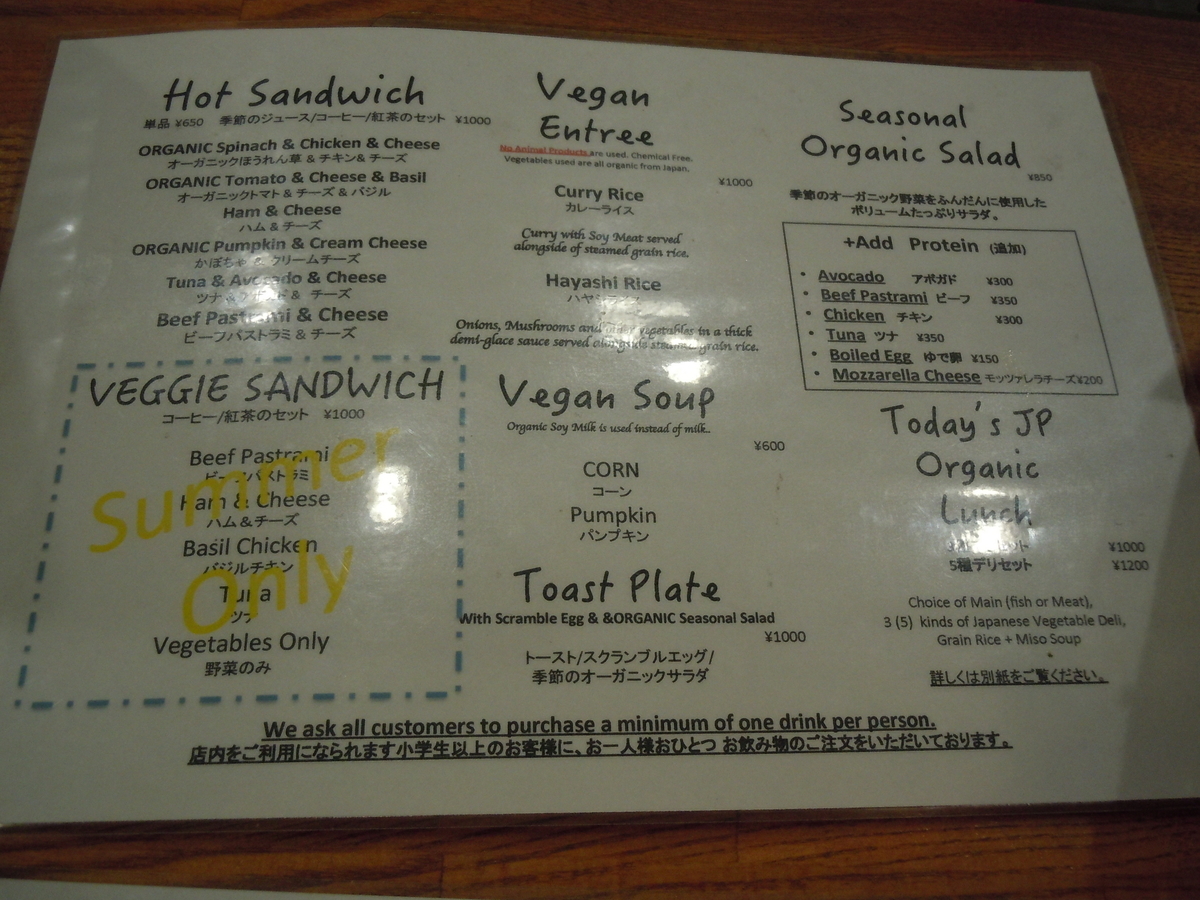 Hot Sandwich
単品 ¥650 季節のジュース/コーヒー/紅茶のセット ¥1000
ORGANIC Spinach & Chicken & Cheese
オーガニックほうれん草 & チキン& チーズ
ORGANIC Tomato & Cheese & Basil
オーガニックトマト & チーズ & バジル
Ham & Cheese
ハム & チーズ
ORGANIC Pumpkin & Cream Cheese
かぼちゃ & クリームチーズ
Tuna & Avocado & Cheese
ツナ & アボカド & チーズ
Beef Pastrami & Cheese
ビーフパストラミ & チーズ
VEGGIE SANDWICH
コーヒー/紅茶のセット ¥1000
Beef Pastrami
ビーフパストラミ
Ham & Cheese
ハム&チーズ
Basil Chicken
バジルチキン
Tuna
ツナ
Vegetables Only
野菜のみ
Summer
Only
Vegan
Entree
No Animal Products are used. Chemical Free.
Vegetables used are all organic from Japan.
¥1000
Curry Rice
カレーライス
Curry with Soy Meat served
alongside of steamed grain rice.
Hayashi Rice
ハヤシライス
Onions, Mushrooms and other vegetables in a thick
demi-glace sauce served alongside steamed grain rice.
Vegan Soup
Organic Soy Milk is used instead of milk.
¥600
CORN
コーン
Pumpkin
パンプキン
Toast Plate
With Scramble Egg & &ORGANIC Seasonal Salad
¥1000
トースト/スクランブルエッグ/
季節のオーガニックサラダ
Seasonal
Organic Salad
¥850
季節のオーガニック野菜をふんだんに使用した
ボリュームたっぷりサラダ。
+Add Protein (追加)
• Avocado アボガド ¥300
• Beef Pastrami ビーフ ¥350
• Chicken チキン ¥300
• Tuna ツナ ¥350
• Boiled Egg ゆで卵 ¥150
• Mozzarella Cheese モッツァレラチーズ¥200
Today's JP
Organic
Lunch
¥1000
5種デリセット ¥1200
Choice of Main (fish or Meat),
3 (5) kinds of Japanese Vegetable Deli,
Grain Rice + Miso Soup
詳しくは別紙をご覧ください。
We ask all customers to purchase a minimum of one drink per person.
店内をご利用になられます小学生以上のお客様に、お一人様おひとつ お飲み物のご注文をいただいております。